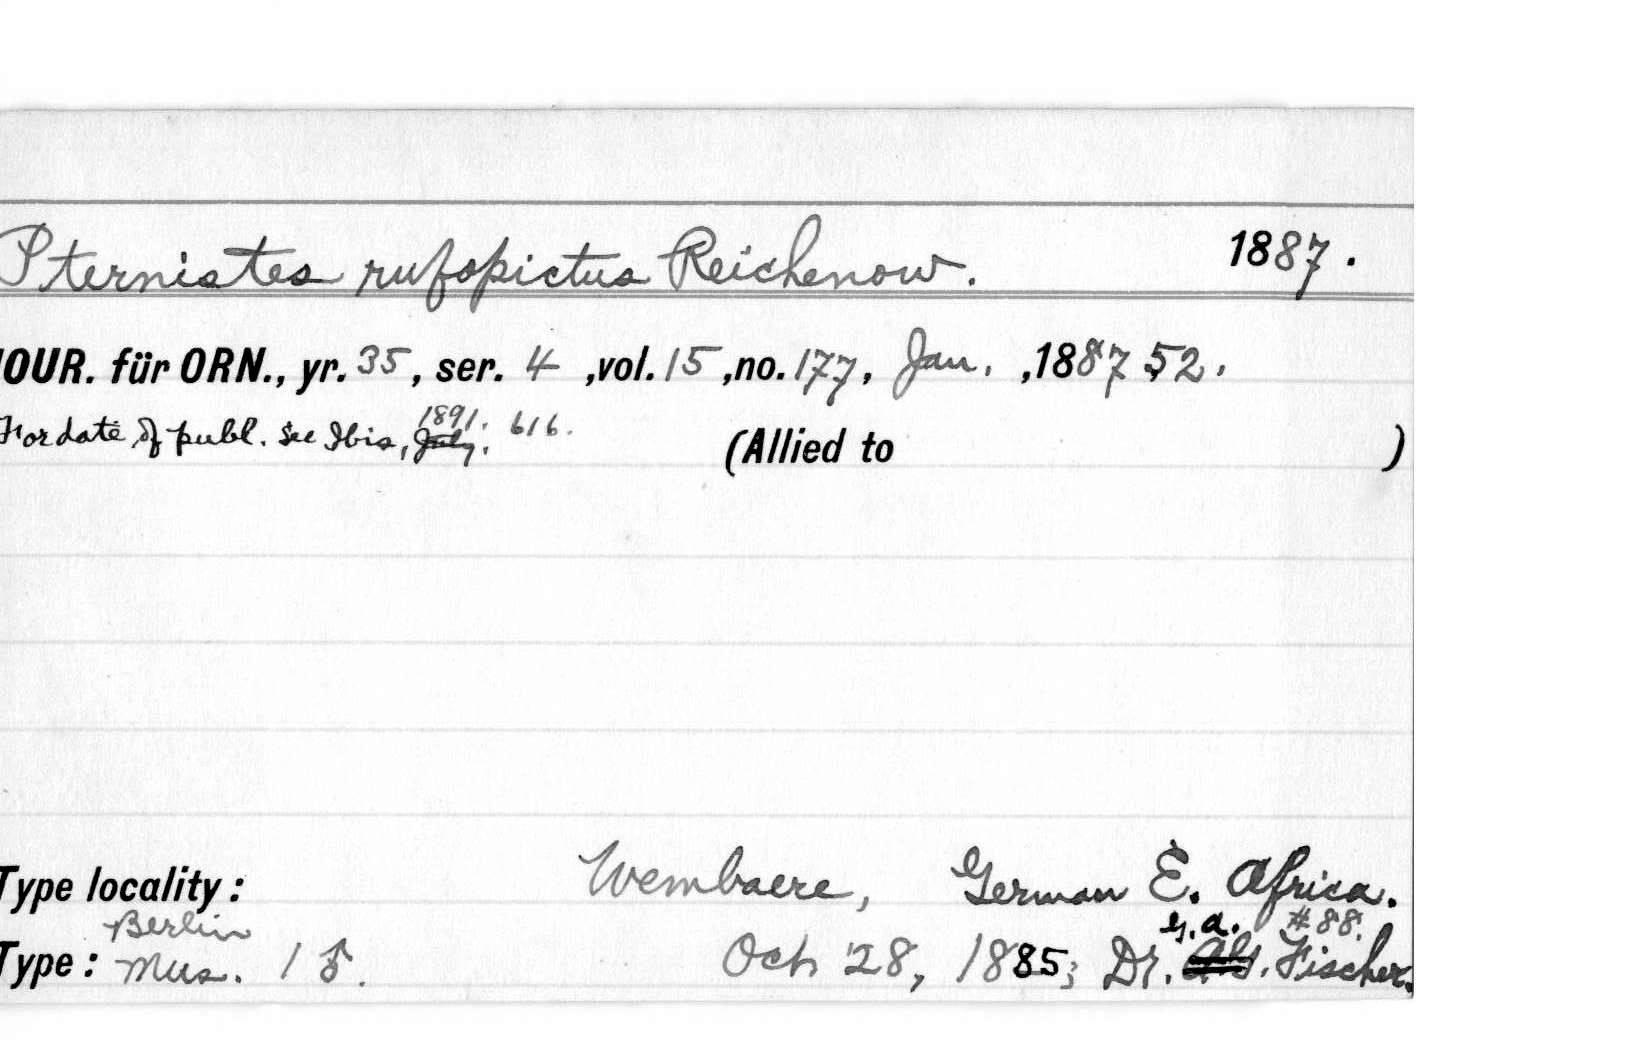 Pternistes rufopictus Reichenow. 1887.
JOUR. für ORN., yr. 35, ser. 4 ,vol. 15 ,no. 177, Jan. ,1887 52.
1891. 616.
For date of publ. see Ibis, July.
(Allied to )
Type locality: Wembaere, German E. Africa.
Berlin G.A. #88.
Type: Mus. 1 ♂. Oct 28, 1885; Dr. Fischer.